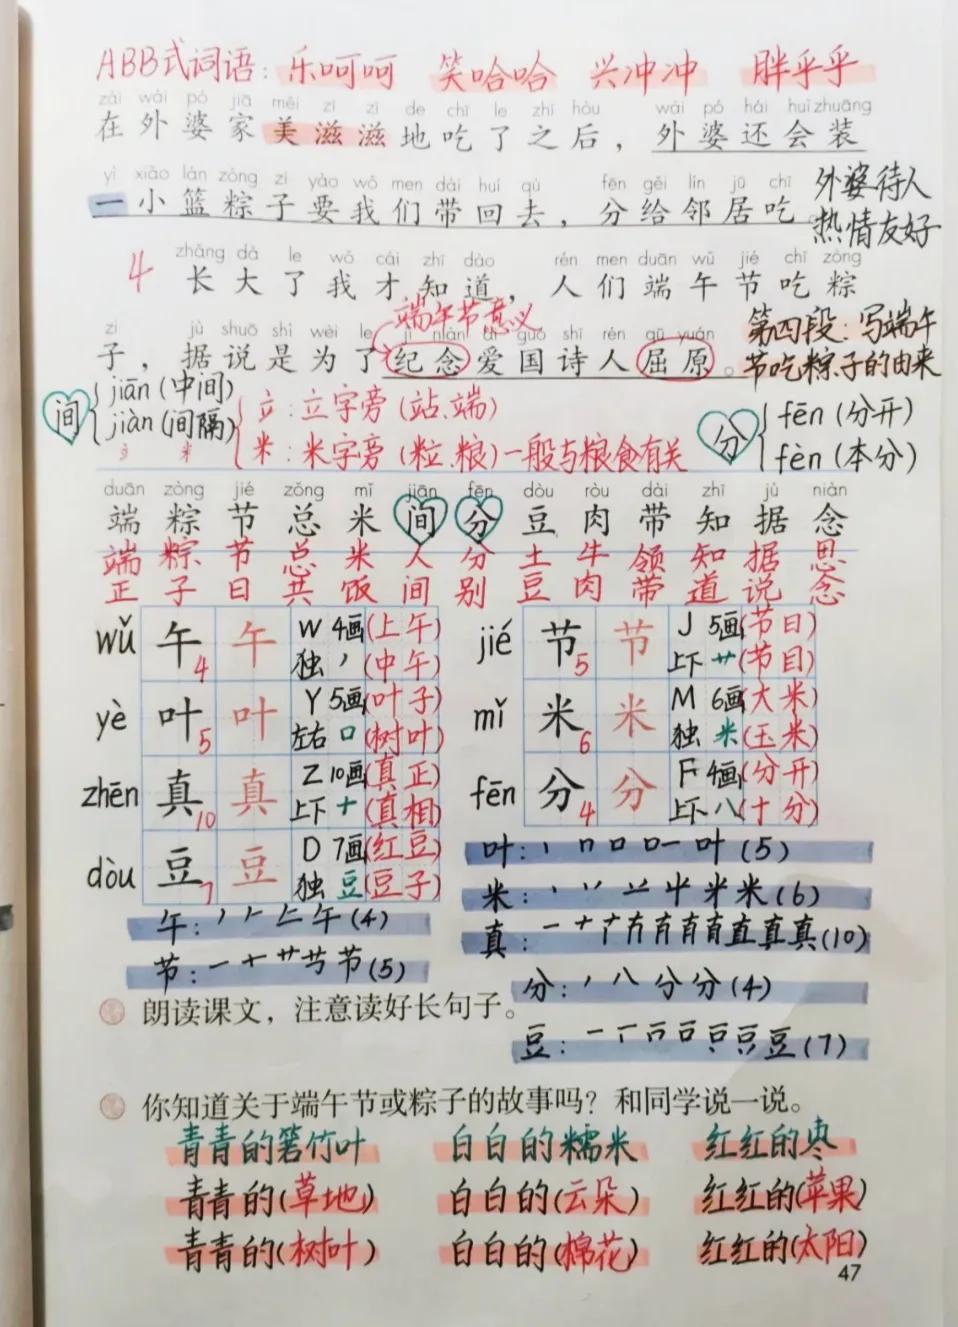 ABB式词语：乐呵呵 笑哈哈 兴冲冲 胖乎乎
zài wài pó jiā měi zī zī de chī le zhī hòu wài pó hái huì zhuāng
在外婆家美滋滋地吃了之后，外婆还会装
yì xiǎo lán zòng zi yào wǒ men dài huí qù fēn gěi lín jū chī
一小篮粽子要我们带回去，分给邻居吃。
外婆待人
热情友好
zhǎng dà le wǒ cái zhī dào rén men duān wǔ jié chī zòng
4 长大了我才知道，人们端午节吃粽
端午节意义
zi jù shuō shì wèi le jì niàn ài guó shī rén qū yuán
子，据说是为了纪念爱国诗人屈原。
第四段：写端午
节吃粽子的由来
间 jiān（中间）
jiàn（间隔）
立：立字旁（站、端）
米：米字旁（粒、粮）一般与粮食有关
分 fēn（分开）
fèn（本分）
duān zòng jié zǒng mǐ jiān fēn dòu ròu dài zhī jù niàn
端 粽 节 总 米 间 分 豆 肉 带 知 据 念
端 粽 节 总 米 人 分 土 牛 领 知 据 思
正 子 日 共 饭 间 别 豆 肉 带 道 说 念
wǔ 午 4 午 W 4画（上午）
独 丿（中午）
jié 节 5 节 J 5画（节日）
上下 艹（节目）
yè 叶 5 叶 Y 5画（叶子）
左右 口（树叶）
mǐ 米 6 米 M 6画（大米）
独 米（玉米）
zhēn 真 10 真 Z 10画（真正）
上下 十（真相）
fēn 分 4 分 F 4画（分开）
上下 八（十分）
dòu 豆 7 豆 D 7画（红豆）
独 豆（豆子）
叶：(5)
米：(6)
午：(4)
真：(10)
节：(5)
分：(4)
朗读课文，注意读好长句子。
豆：(7)
你知道关于端午节或粽子的故事吗？和同学说一说。
青青的箬竹叶 白白的糯米 红红的枣
青青的（草地） 白白的（云朵） 红红的（苹果）
青青的（树叶） 白白的（棉花） 红红的（太阳）
47